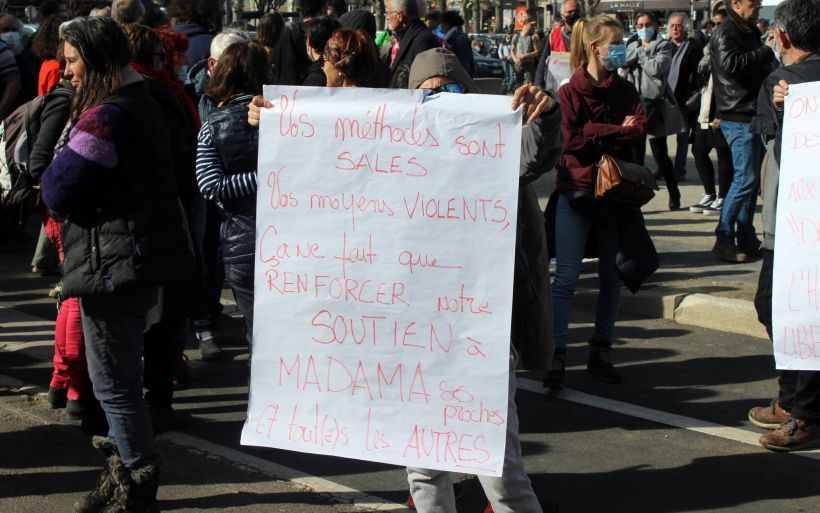 Vos méthodes sont
SALES
Vos moyens VIOLENTS,
Ça ne fait que
RENFORCER notre
SOUTIEN à
MADAMA ses
proches
Et tout(e)s les AUTRES
ON
DES
AUX
"DE
L'H
LIBE
LA HALLE